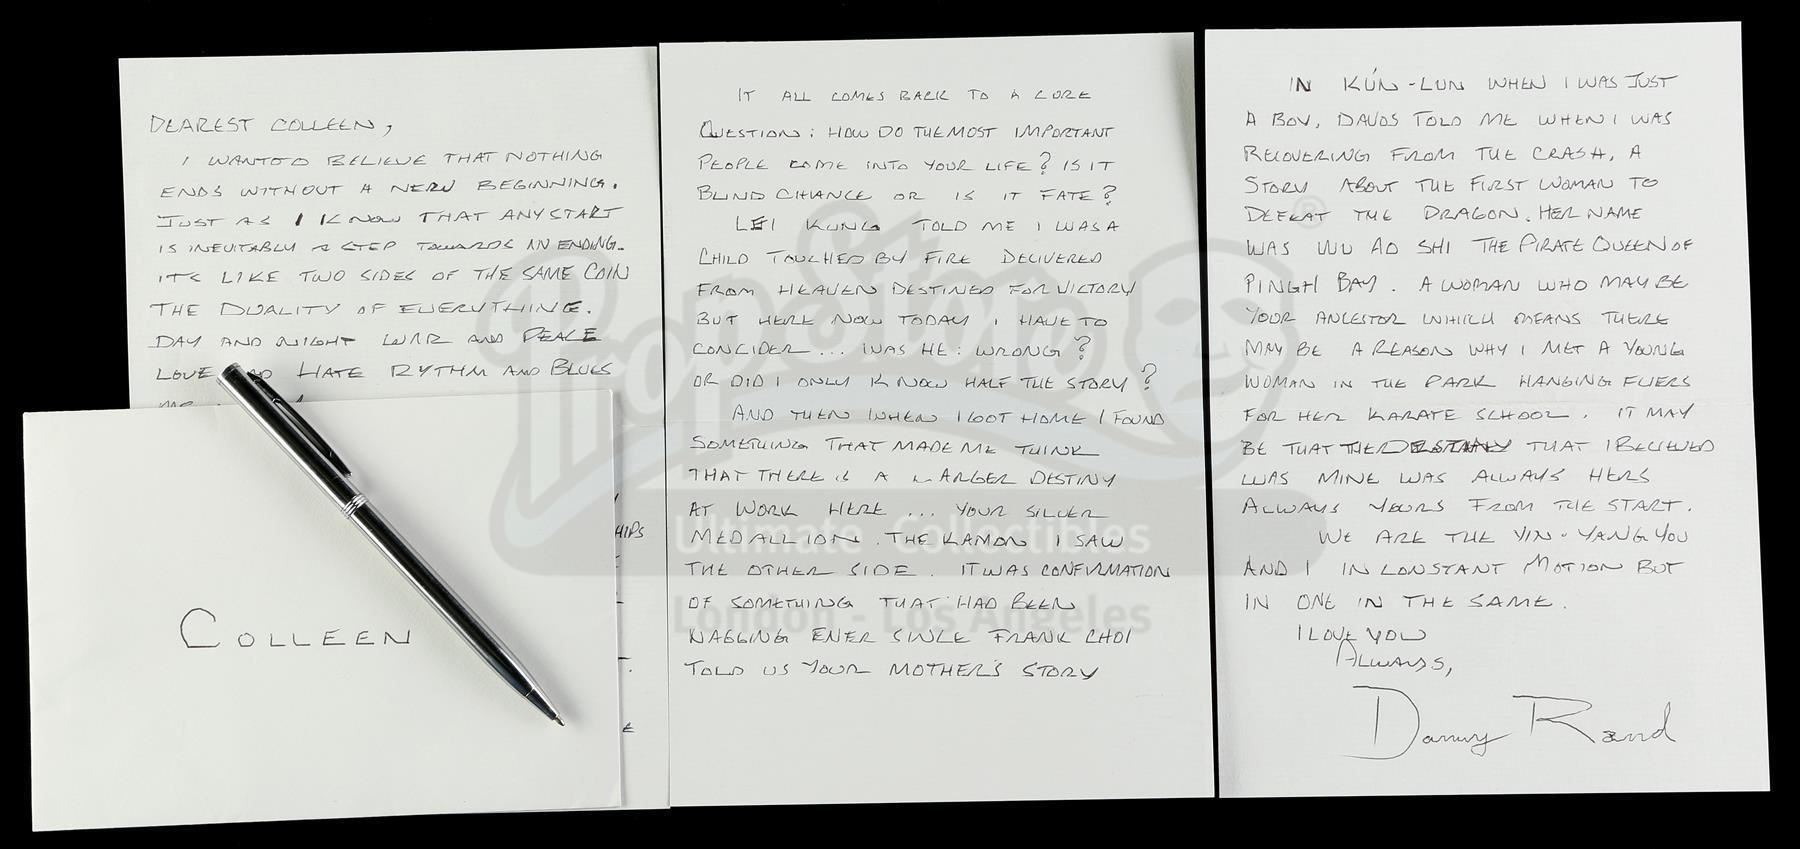 DEAREST COLLEEN,
I WANT TO BELIEVE THAT NOTHING
ENDS WITHOUT A NEW BEGINNING.
JUST AS I KNOW THAT ANY START
IS INEVITABLY A STEP TOWARDS AN ENDING.
IT'S LIKE TWO SIDES OF THE SAME COIN
THE DUALITY OF EVERYTHING.
DAY AND NIGHT WAR AND PEACE
LOVE AND HATE RYTHM AND BLUES
HIPS
T.
E
COLLEEN
IT ALL COMES BACK TO A CORE
QUESTION: HOW DO THE MOST IMPORTANT
PEOPLE COME INTO YOUR LIFE? IS IT
BLIND CHANCE OR IS IT FATE?
LEI KUNG TOLD ME I WAS A
CHILD TOUCHED BY FIRE DELIVERED
FROM HEAVEN DESTINED FOR VICTORY
BUT HERE NOW TODAY I HAVE TO
CONCIDER... WAS HE: WRONG?
OR DID I ONLY KNOW HALF THE STORY?
AND THEN WHEN I GOT HOME I FOUND
SOMETHING THAT MADE ME THINK
THAT THERE IS A LARGER DESTINY
AT WORK HERE... YOUR SILVER
MEDALLION. THE KAMON I SAW
THE OTHER SIDE. IT WAS CONFIRMATION
OF SOMETHING THAT HAD BEEN
NAGGING EVER SINCE FRANK CHOI
TOLD US YOUR MOTHER'S STORY
IN KÚN-LUN WHEN I WAS JUST
A BOY, DAVOS TOLD ME WHEN I WAS
RECOVERING FROM THE CRASH, A
STORY ABOUT THE FIRST WOMAN TO
DEFEAT THE DRAGON. HER NAME
WAS WU AO SHI THE PIRATE QUEEN OF
PINGH BAY. A WOMAN WHO MAY BE
YOUR ANCESTOR WHICH MEANS THERE
MAY BE A REASON WHY I MET A YOUNG
WOMAN IN THE PARK HANGING FLIERS
FOR HER KARATE SCHOOL. IT MAY
BE THAT THE DESTINY THAT I BELIEVED
WAS MINE WAS ALWAYS HERS
ALWAYS YOURS FROM THE START.
WE ARE THE YIN-YANG YOU
AND I IN CONSTANT MOTION BUT
IN ONE IN THE SAME.
I LOVE YOU
ALWAYS,
Danny Rand
Propstore ®
Ultimate Collectibles
London - Los Angeles